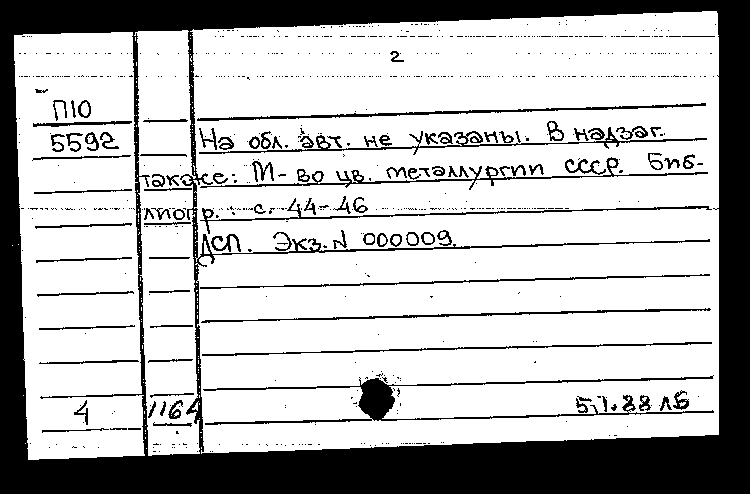 2
П10
5592 На обл. авт. не указаны. В надзаг.
также: М-во цв. металлургии СССР. Биб-
лиогр.: с. 44-46
ДСП. Экз. N 000009.
4 1164 5.1.88 ЛБ